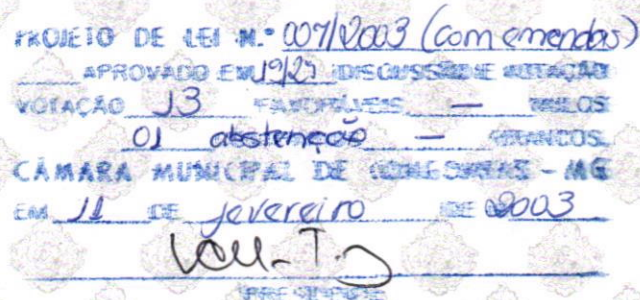 PROJETO DE LEI N.º 007/2003 (com emendas)
APROVADO EM 1ª/2ª DISCUSSÃO E VOTAÇÃO
VOTAÇÃO 13 FAVORÁVEIS — NULOS
01 abstenção — BRANCOS.
CÂMARA MUNICIPAL DE - MG
EM 11 DE fevereiro DE 2003
PRESIDENTE